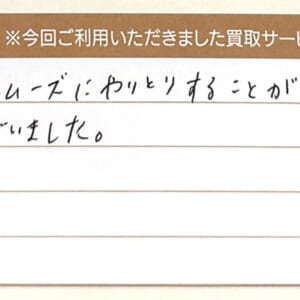 ※今回ご利用いただきました買取サービ
ムーズにやりとりすることが
いました。